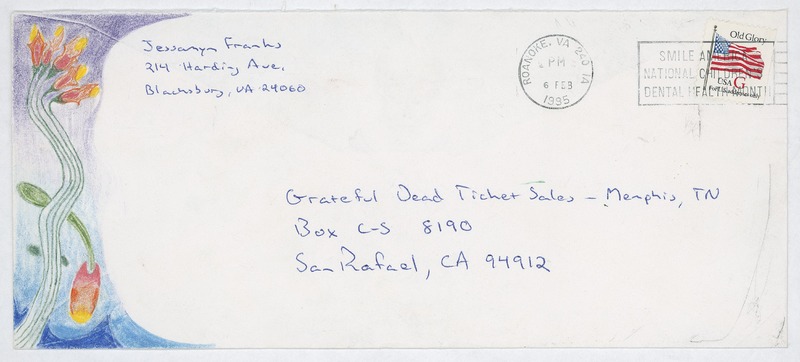 Jessamyn Franks
214 Harding Ave.
Blacksburg, VA 24060
ROANOKE, VA 240 1A
PM
6 FEB
1995
SMILE
NATIONAL CHILDREN
DENTAL HEALTH MONTH
Old Glory
USA G
For U.S. addresses only
Grateful Dead Ticket Sales - Memphis, TN
Box C-S 8190
San Rafael, CA 94912